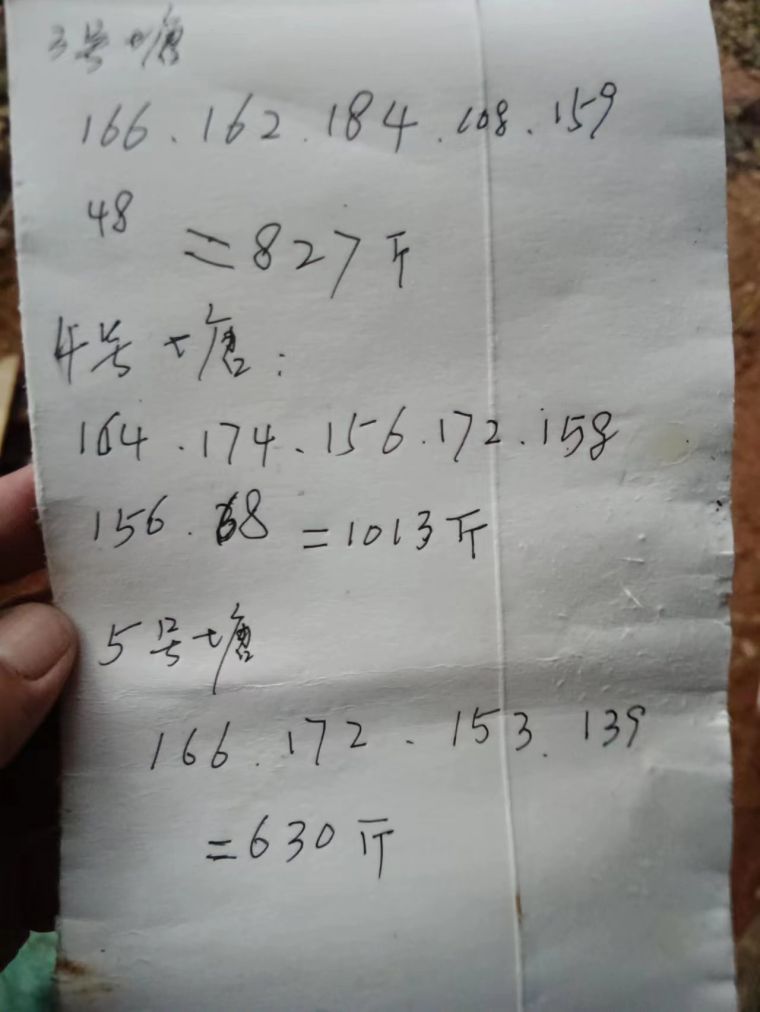 3号塘
166.162.184.108.159
48 =827斤
4号塘:
164.174.156.172.158
156.68 =1013斤
5号塘
166.172.153.139
=630斤